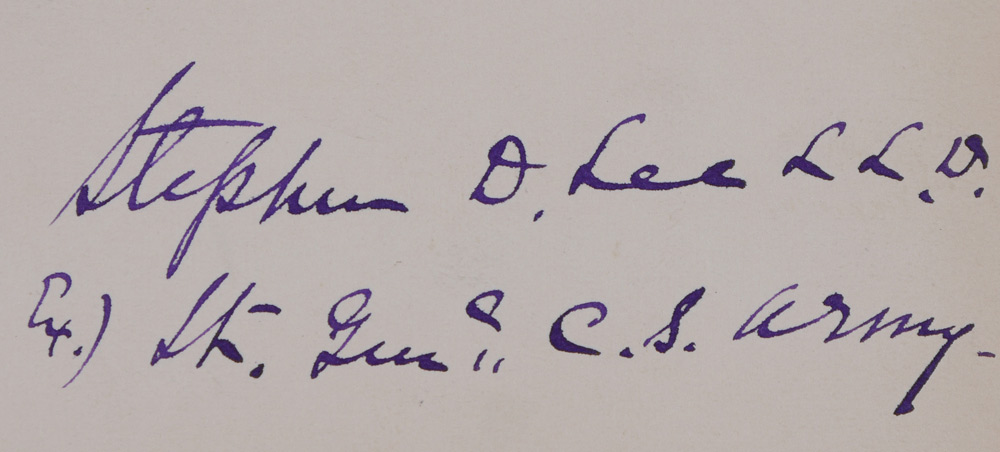 Stephen D. Lee L L.D.
Ex.) Lt. Genl. C.S. Army-